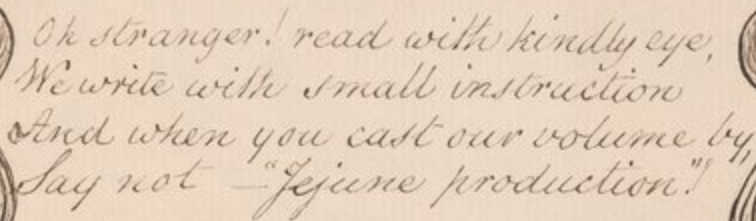 Oh stranger! read with kindly eye,
We write with small instruction
And when you cast our volume by,
Say not — "Jejune production"!